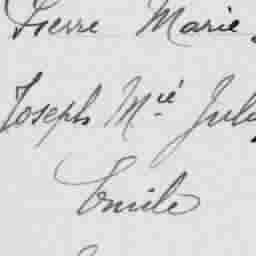 Pierre Marie
Joseph Mie
Emile